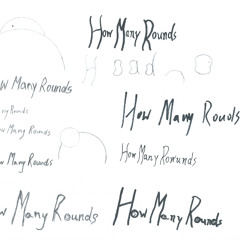 How Many Rounds
H
ow Many Rounds
ny Rounds
How Many Rouols
w Many Rounds
w Many Rounds
How Many Romunds
w Many Rounds
How Many Rounds